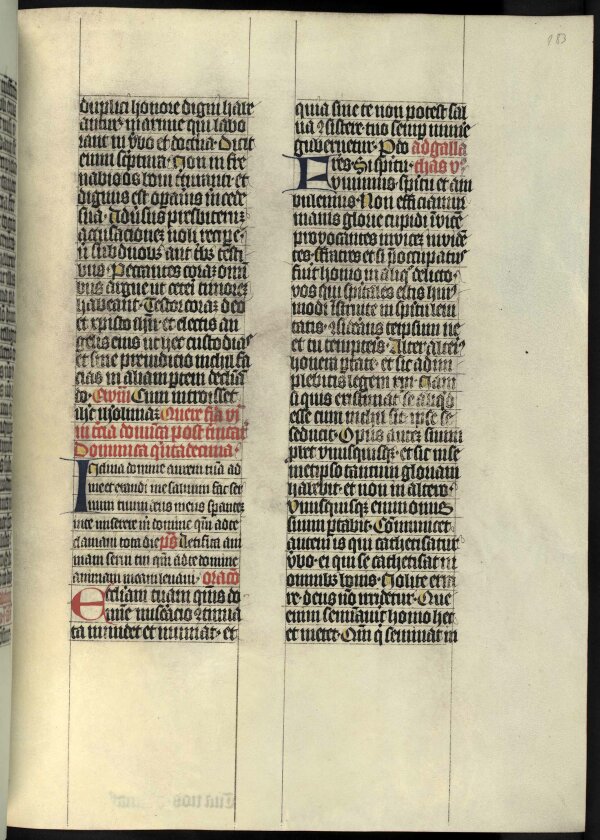 183
duplici honore digni habe
antur maxime qui labo
rant in verbo et doctrina. Dicit
enim scriptura. Non in fre
nabis os bovi triturati et
dignus est operarius mercede
sua. Adversus presbiterum
accusacionem noli recipere
nisi sub duobus aut tribus testi
bus. Peccantes coram omni
bus argue ut ceteri timorem
habeant. Testor coram deo
et christo ihesu et electis an
gelis eius ut hec custodias
et sine preiudicio nichil fa
cias in aliam partem declina
do. Ewm. Cum introisset
ihesus iherosolimam. Quere feria vi
in
Dominica quintadecima.
Inclina domine aurem tuam ad
me et exaudi me salvum fac ser
vum tuum deus meus sperantem
in te miserere mihi domine quoniam ad te
clamavi tota die. ps. Letifica ani
mam servi tui quoniam ad te domine
animam meam levavi. oracio
Ecclesiam tuam quesumus do
mine miseracio continua
ta mundet et muniat. et
quia sine te non potest sal
va consistere tuo semper munere
gubernetur. Per do. ad galla
Fratres. Si spiritu thas v
vivimus spiritu et am
bulemus. Non efficiamur
inanis glorie cupidi invicem
provocantes invicem inviden
tes. Fratres et si preoccupatus
fuerit homo in aliquo delicto.
vos qui spirituales estis huius
modi instruite in spiritu leni
tatis. considerans teipsum ne
et tu tempteris. Alter alteri
honera portate. et sic adim
plebitis legem christi. Nam
si quis existimat se aliquid
esse cum nichil sit ipse se
seducit. Opus autem suum
probet unusquisque. et sic in se
metipso tantum gloriam
habebit. et non in altero.
Unusquisque enim onus
suum portabit. Communicet
autem is qui cathezisatur
verbo. ei qui se cathezisat in
omnibus bonis. Nolite erra
re. deus non irridetur. Que
enim seminaverit homo hec
et metet. Quoniam qui seminat in